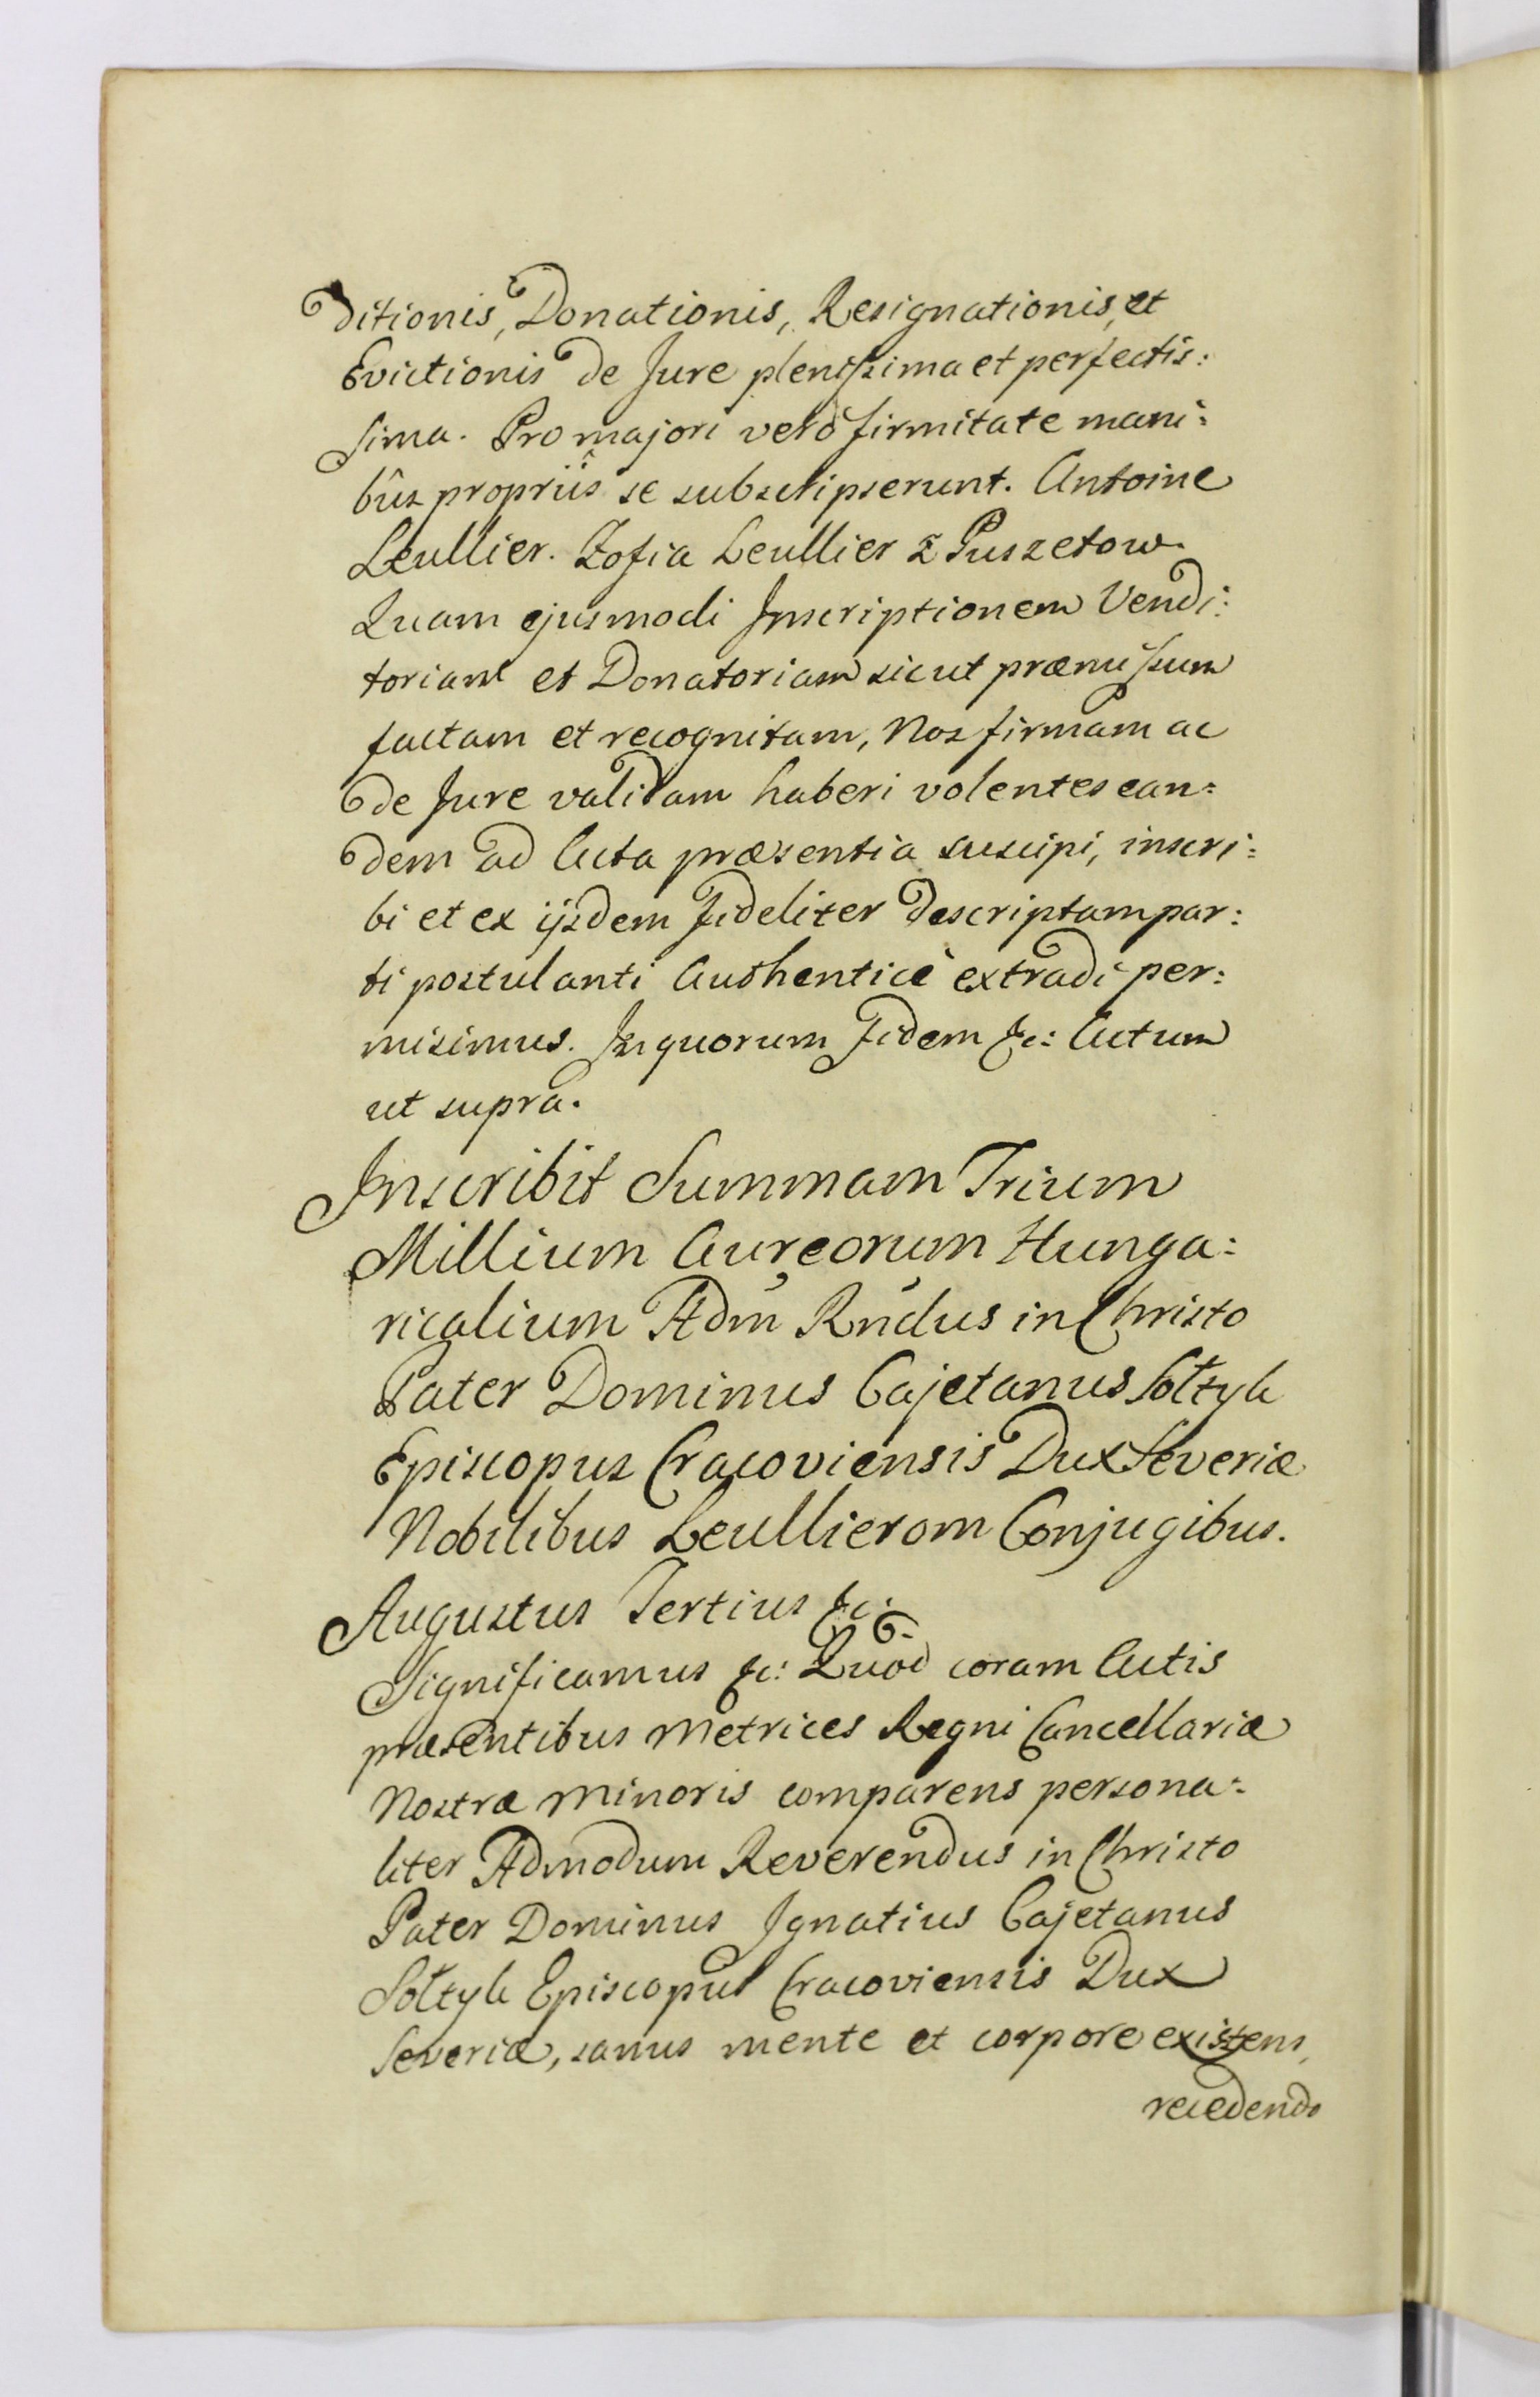 ditionis, Donationis, Resignationis, et
Evictionis de Jure plenissima et perfectis:
sima. Pro majori verò firmitate mani:
bûs propriis se subscripserunt. Antoine
Leullier. Zofia Leullier z Puszetow.
Quam ejusmodi Inscriptionem Vendi:
toriam et Donatoriam sicut præmissum
factam et recognitam, Nos firmam ac
de Jure validam haberi volentes ean:
dem ad Acta præsentia suscipi, inscri:
bi et ex ijsdem fideliter descriptam par:
ti postulanti Authenticè extradi per:
misimus. In quorum Fidem &c: Actum
ut supra.
Inscribit Summam Trium
Millium Aureorum Hunga:
ricalium Adm Rndus in Christo
Pater Dominus Cajetanus Sołtyk
Episcopus Cracoviensis Dux Severiæ
Nobilibus Leullierom Conjugibus.
Augustus Tertius &c:
Significamus &c: Quod coram Actis
præsentibus Metrices Regni Cancellariæ
Nostræ Minoris comparens persona:
liter Admodum Reverendus in Christo
Pater Dominus Ignatius Cajetanus
Sołtyk Episcopus Cracoviensis Dux
Severiæ, sanus mente et corpore existens,
recedendo